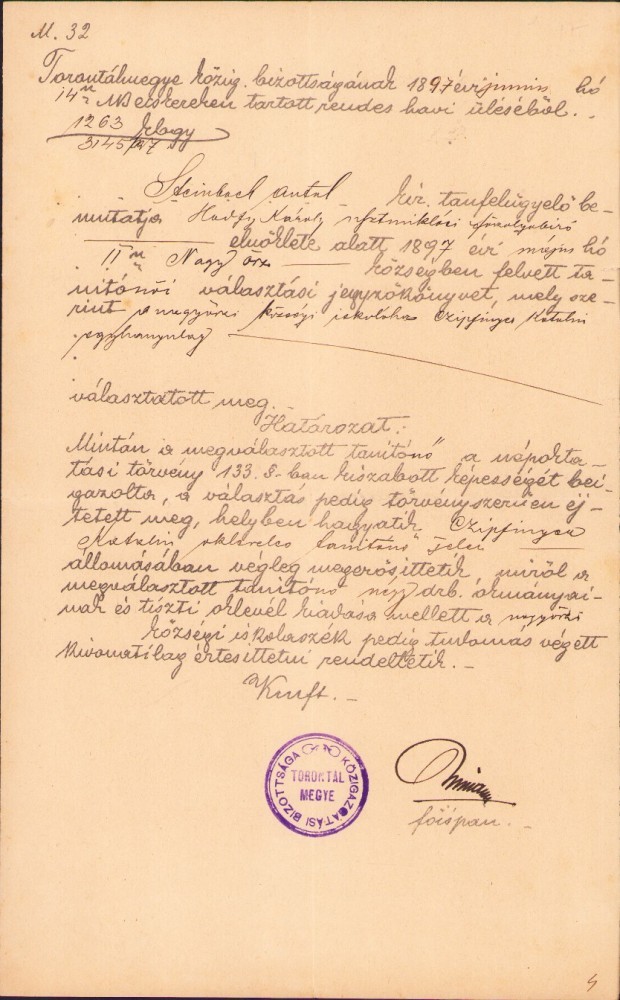 M. 32
Torontálmegye közig. bizottságának 1897 évi junius hó
14én Nbecskereken tartott rendes havi üléséből. -
1263 kbogy
3145/97
Steinbach Antal kir. tanfelügyelő be-
mutatja Hadfy Károly nsztmiklósi főszolgabiró
elnöklete alatt 1897 évi május hó
11én Nagy Ősz községben felvett ta-
nitónői választási jegyzőkönyvet, mely sze-
rint a nagyőszi községi iskolához Czipfinger Katalin
egyhangulag
választatott meg.
Határozat:
Miután a megválasztott tanitónő a népokta-
tási törvény 133.§-ban kiszabott képességét bei-
gazolta, a választás pedig törvényszerüen ej-
tetett meg, helyben hagyatik Czipfinger
Katalin okleveles tanitónő jelen
állomásában végleg megerősittetik, miről a
megválasztott tanitónő négy drb. okmányai-
nak és tiszti oklevél kiadása mellett a nagyőszi
községi iskolaszék pedig tudomás végett
kivonatilag értesittetni rendeltetik. -
Kmft. -
TORONTÁL
MEGYE
KÖZIGAZGATÁSI BIZOTTSÁGA
főispán. -